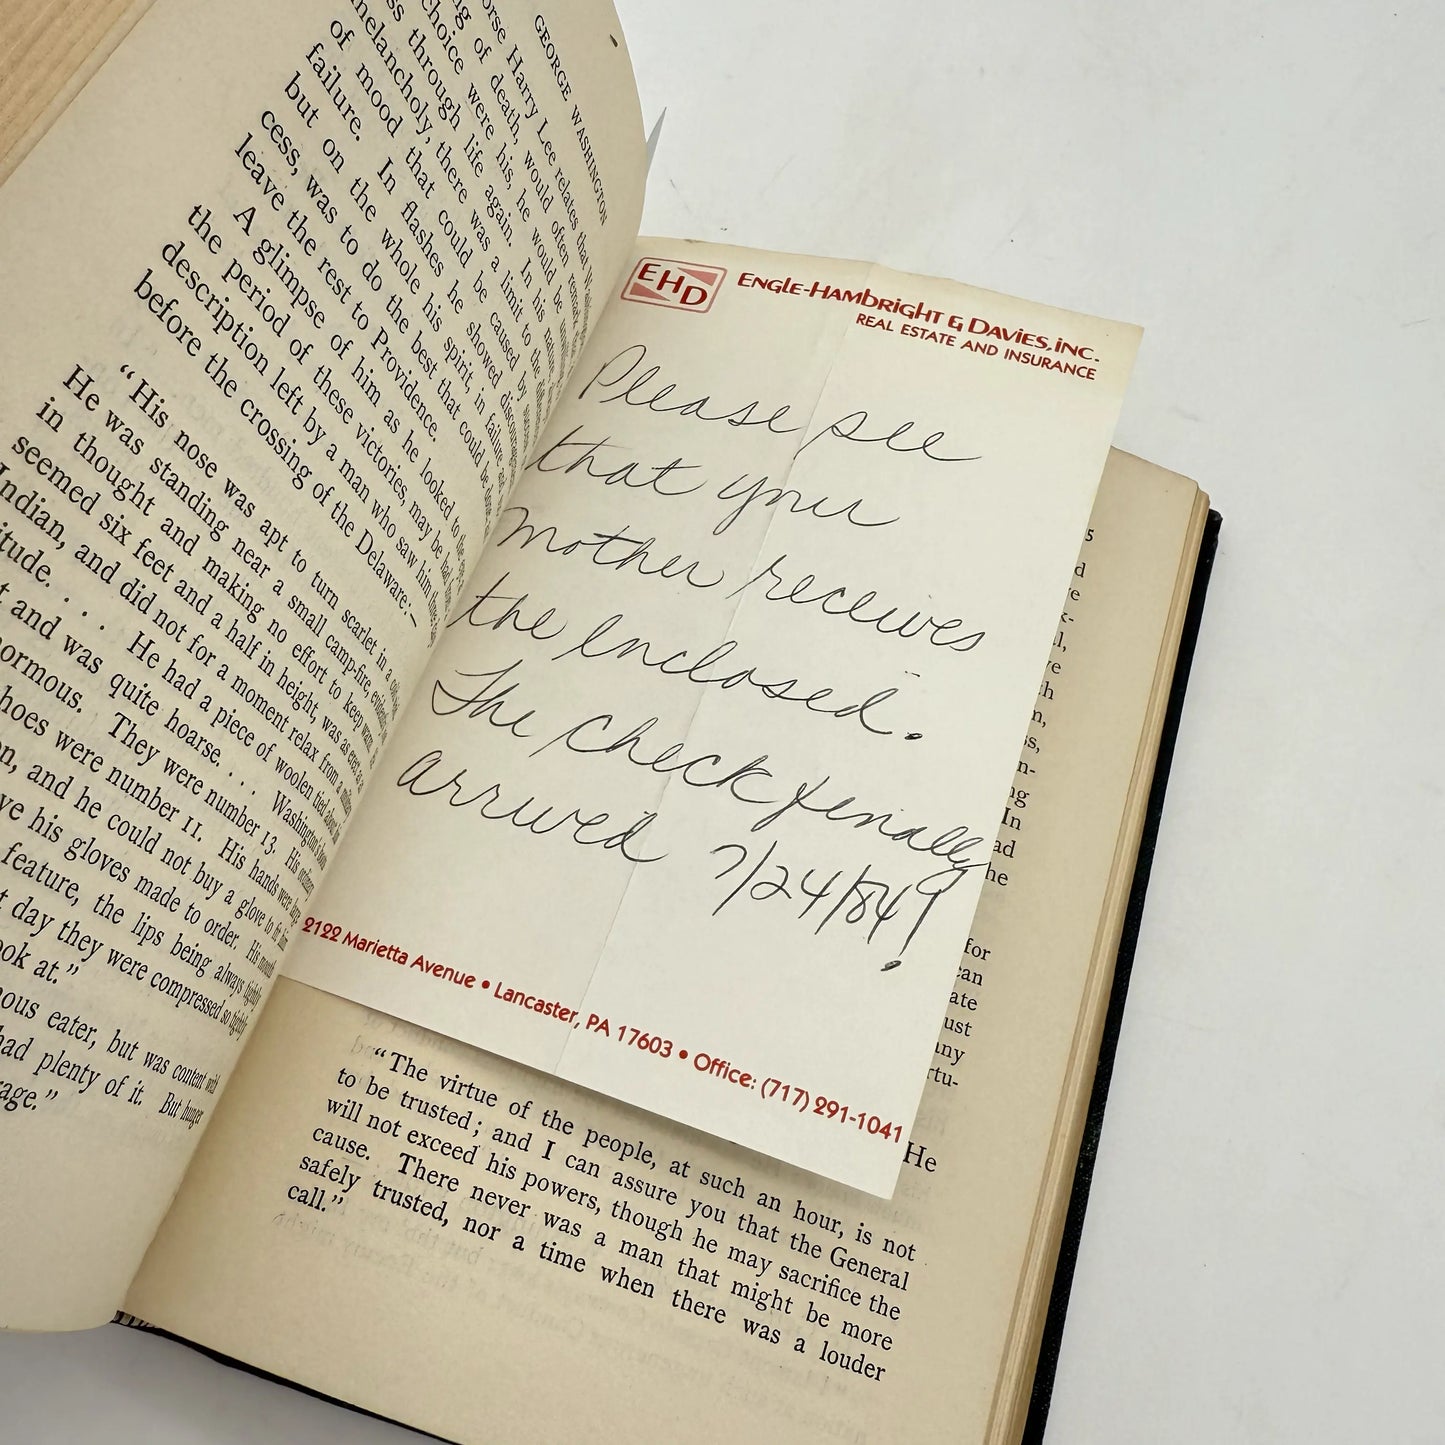 GEORGE WASHINGTON
Harry Lee relates that
of death, would often remark
choice were his, he would be
through life again. In his nature
melancholy, there was a limit to the
of mood that could be caused by
failure. In flashes he showed
but on the whole his spirit, in failure and
cess, was to do the best that could be done,
leave the rest to Providence.
A glimpse of him as he looked to the
the period of these victories, may be had
description left by a man who saw him
before the crossing of the Delaware:—
“His nose was apt to turn scarlet in a
He was standing near a small camp-fire, evidently
in thought and making no effort to keep warm.
seemed six feet and a half in height, was as erect as a
Indian, and did not for a moment relax from a military
itude. . . . He had a piece of woolen tied about his
and was quite hoarse. . . . Washington's
ormous. They were number 13. His ordinary
hoes were number 11. His hands were large
n, and he could not buy a glove to fit him
ve his gloves made to order. His mouth
feature, the lips being always tightly
day they were compressed so tightly
ook at.”
ous eater, but was content with
had plenty of it. But hunger
age.”
EHD
ENGLE-HAMBRIGHT & DAVIES, INC.
REAL ESTATE AND INSURANCE
Please see
that your
mother receives
the enclosed.
The check finally
arrived 7/24/84!
2122 Marietta Avenue • Lancaster, PA 17603 • Office: (717) 291-1041
5
d
ve
k-
l,
ve
h
n,
ss,
n-
ng
In
ad
he
for
can
ate
ust
any
rtu-
He
“The virtue of the people, at such an hour, is not
to be trusted; and I can assure you that the General
will not exceed his powers, though he may sacrifice the
cause. There never was a man that might be more
safely trusted, nor a time when there was a louder
call.”